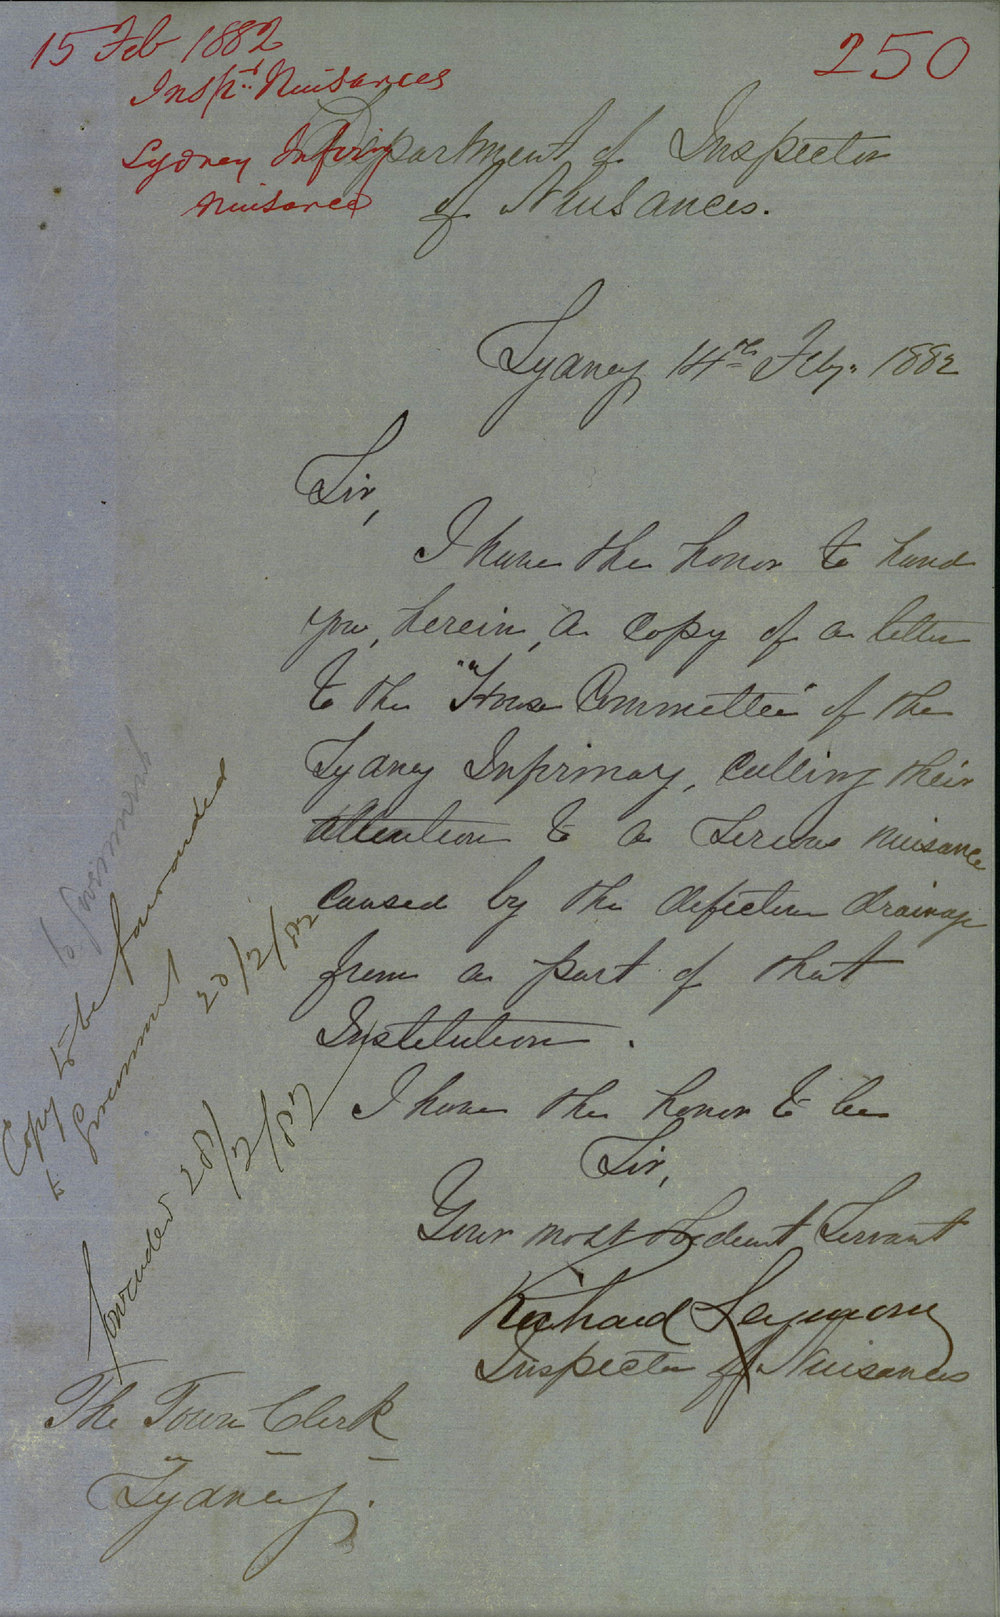 15 Feb 1882
250
Insp.r Nuisances
Sydney Infirmy
nuisance
Department of Inspector
of Nuisances.
Sydney 14th Feby. 1882
Sir,
I have the honor to hand
you, herein, a copy of a letter
to the "House Committee" of the
Sydney Infirmary, calling their
attention to a serious nuisance
caused by the defective drainage
from a part of that
Institution.
I have the honor to be
Sir,
Your most obedient Servant
Richard Seymour
Inspector of Nuisances
The Town Clerk
Sydney.
to Government
Copy to be forwarded
to Government 20/2/82
forwarded 28/2/82